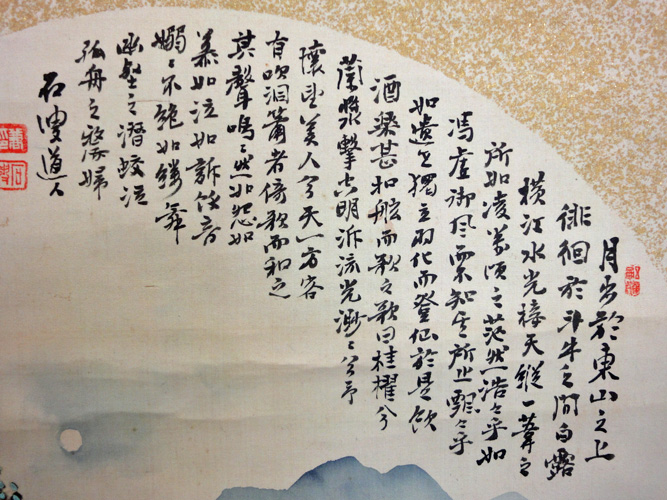 月出於東山之上
徘徊於斗牛之間白露
橫江水光接天縱一葦之
所如凌萬頃之茫然浩々乎如
馮虛御風而不知其所止飄々乎
如遺世獨立羽化而登仙於是飲
酒樂甚扣舷而歌之歌曰桂櫂兮
蘭槳擊空明泝流光渺々兮予
懷望美人兮天一方客
有吹洞簫者倚歌而和之
其聲嗚々然如怨如
慕如泣如訴餘音
嫋々不絕如縷舞
幽壑之潛蛟泣
孤舟之嫠婦
石道人